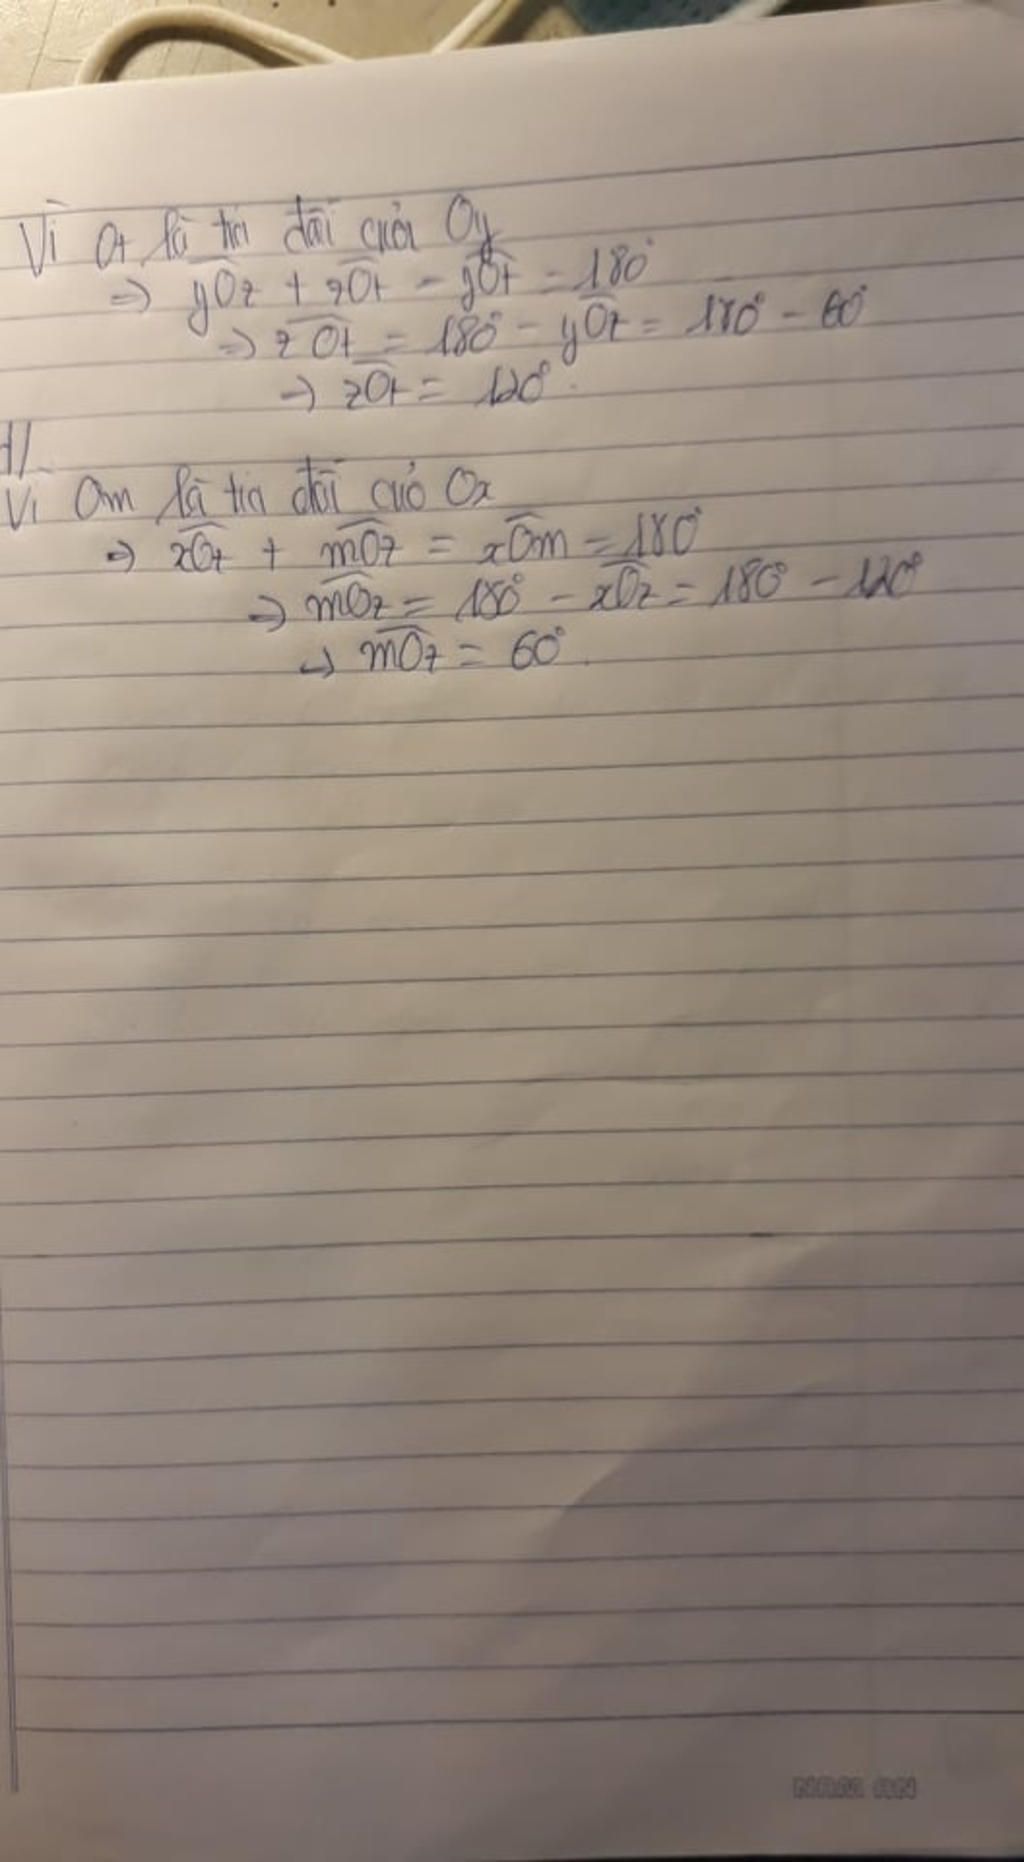 Vì Ot là tia đối của Oy
=> yOz + zOt = yOt = 180°
=> zOt = 180° - yOz = 180° - 60°
=> zOt = 120°.
d/
Vì Om là tia đối của Ox
=> xOz + mOz = xOm = 180°
=> mOz = 180° - xOz = 180° - 120°
=> mOz = 60°.
NAM AN